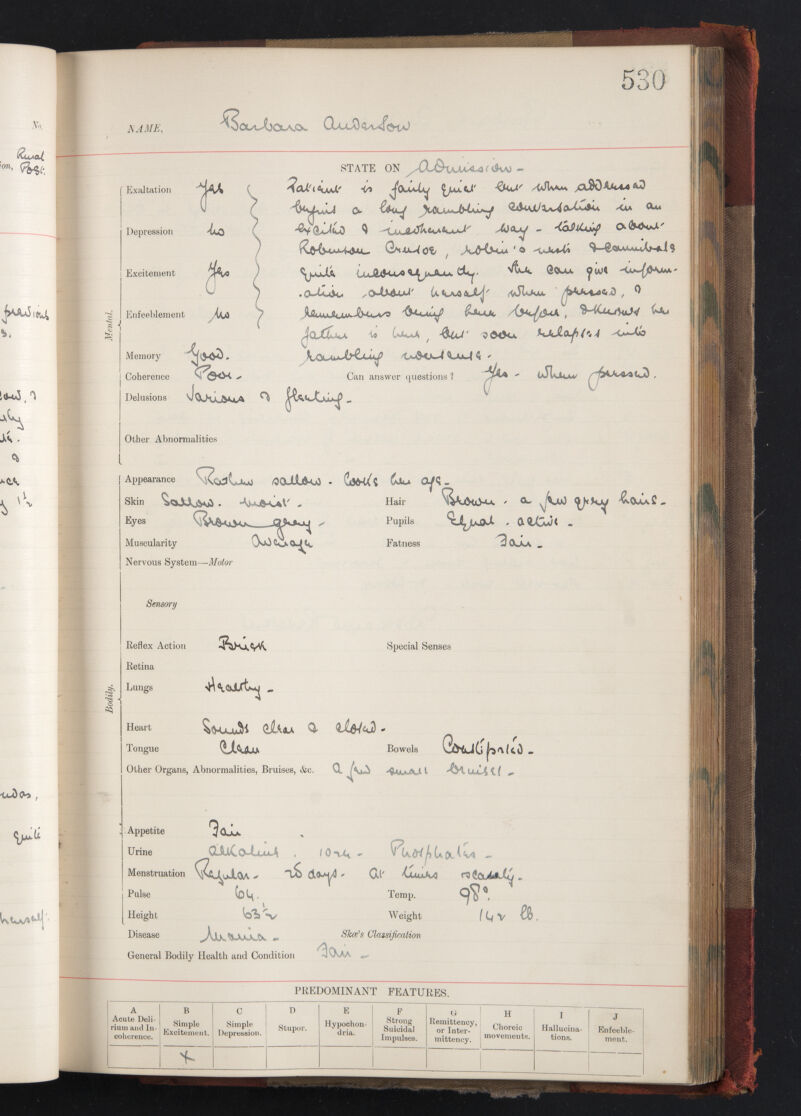 530
No.
NAME, Barbara Anderson
Rural
ion, Post.
STATE ON Admission -
Exaltation Yes Patient is fairly quiet but when addressed
begins a long rambling conversation in an
Depression No excited & incoherent way - talking about
Robinson Crusoe, robin's nests & cannibals
Excitement Yes quite inconsequently. She can give inform-
.ation about herself when pressed, &
previous
Enfeeblement No remembers being here before, & knows her
s.
Mental.
father is here, but soon relapses into
Memory Good. rambling nonsense.
Coherence Poor - Can answer questions? Yes - when pressed.
Delusions Various & fleeting -
Other Abnormalities
&
Appearance Rather sallow. Looks her age -
y 1½
Skin Sallow. moist. Hair Brown. a few grey hairs -
Eyes Brown grey - Pupils Equal. active -
Muscularity Average Fatness Fair -
Nervous System—Motor
Sensory
Reflex Action Brisk Special Senses
Retina
Bodily.
Lungs Healthy -
Heart Sounds clear & closed -
Tongue Clean Bowels Constipated -
Other Organs, Abnormalities, Bruises, &c. A few small bruises -
Appetite Fair
quite
Urine Alkaline. 1024 - Phosphates -
Menstruation Regular - 28 days - At times scanty -
Pulse 64. Temp. 98°.
Height 63½ Weight 142 lb.
herself.
Disease Mania - Skæ's Classification
General Bodily Health and Condition Fair -
PREDOMINANT FEATURES.
A B C D E F G H I J
Acute Deli-rium and In-coherence. Simple Excitement. Simple Depression. Stupor. Hypochon-dria. Strong Suicidal Impulses. Remittency, or Inter-mittency. Choreic movements. Hallucina-tions. Enfeeble-ment.
x